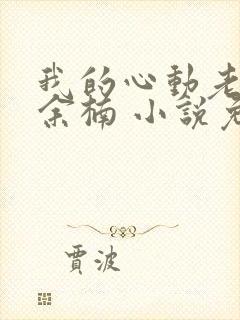 我的心動老
余楠 小說免
賈波